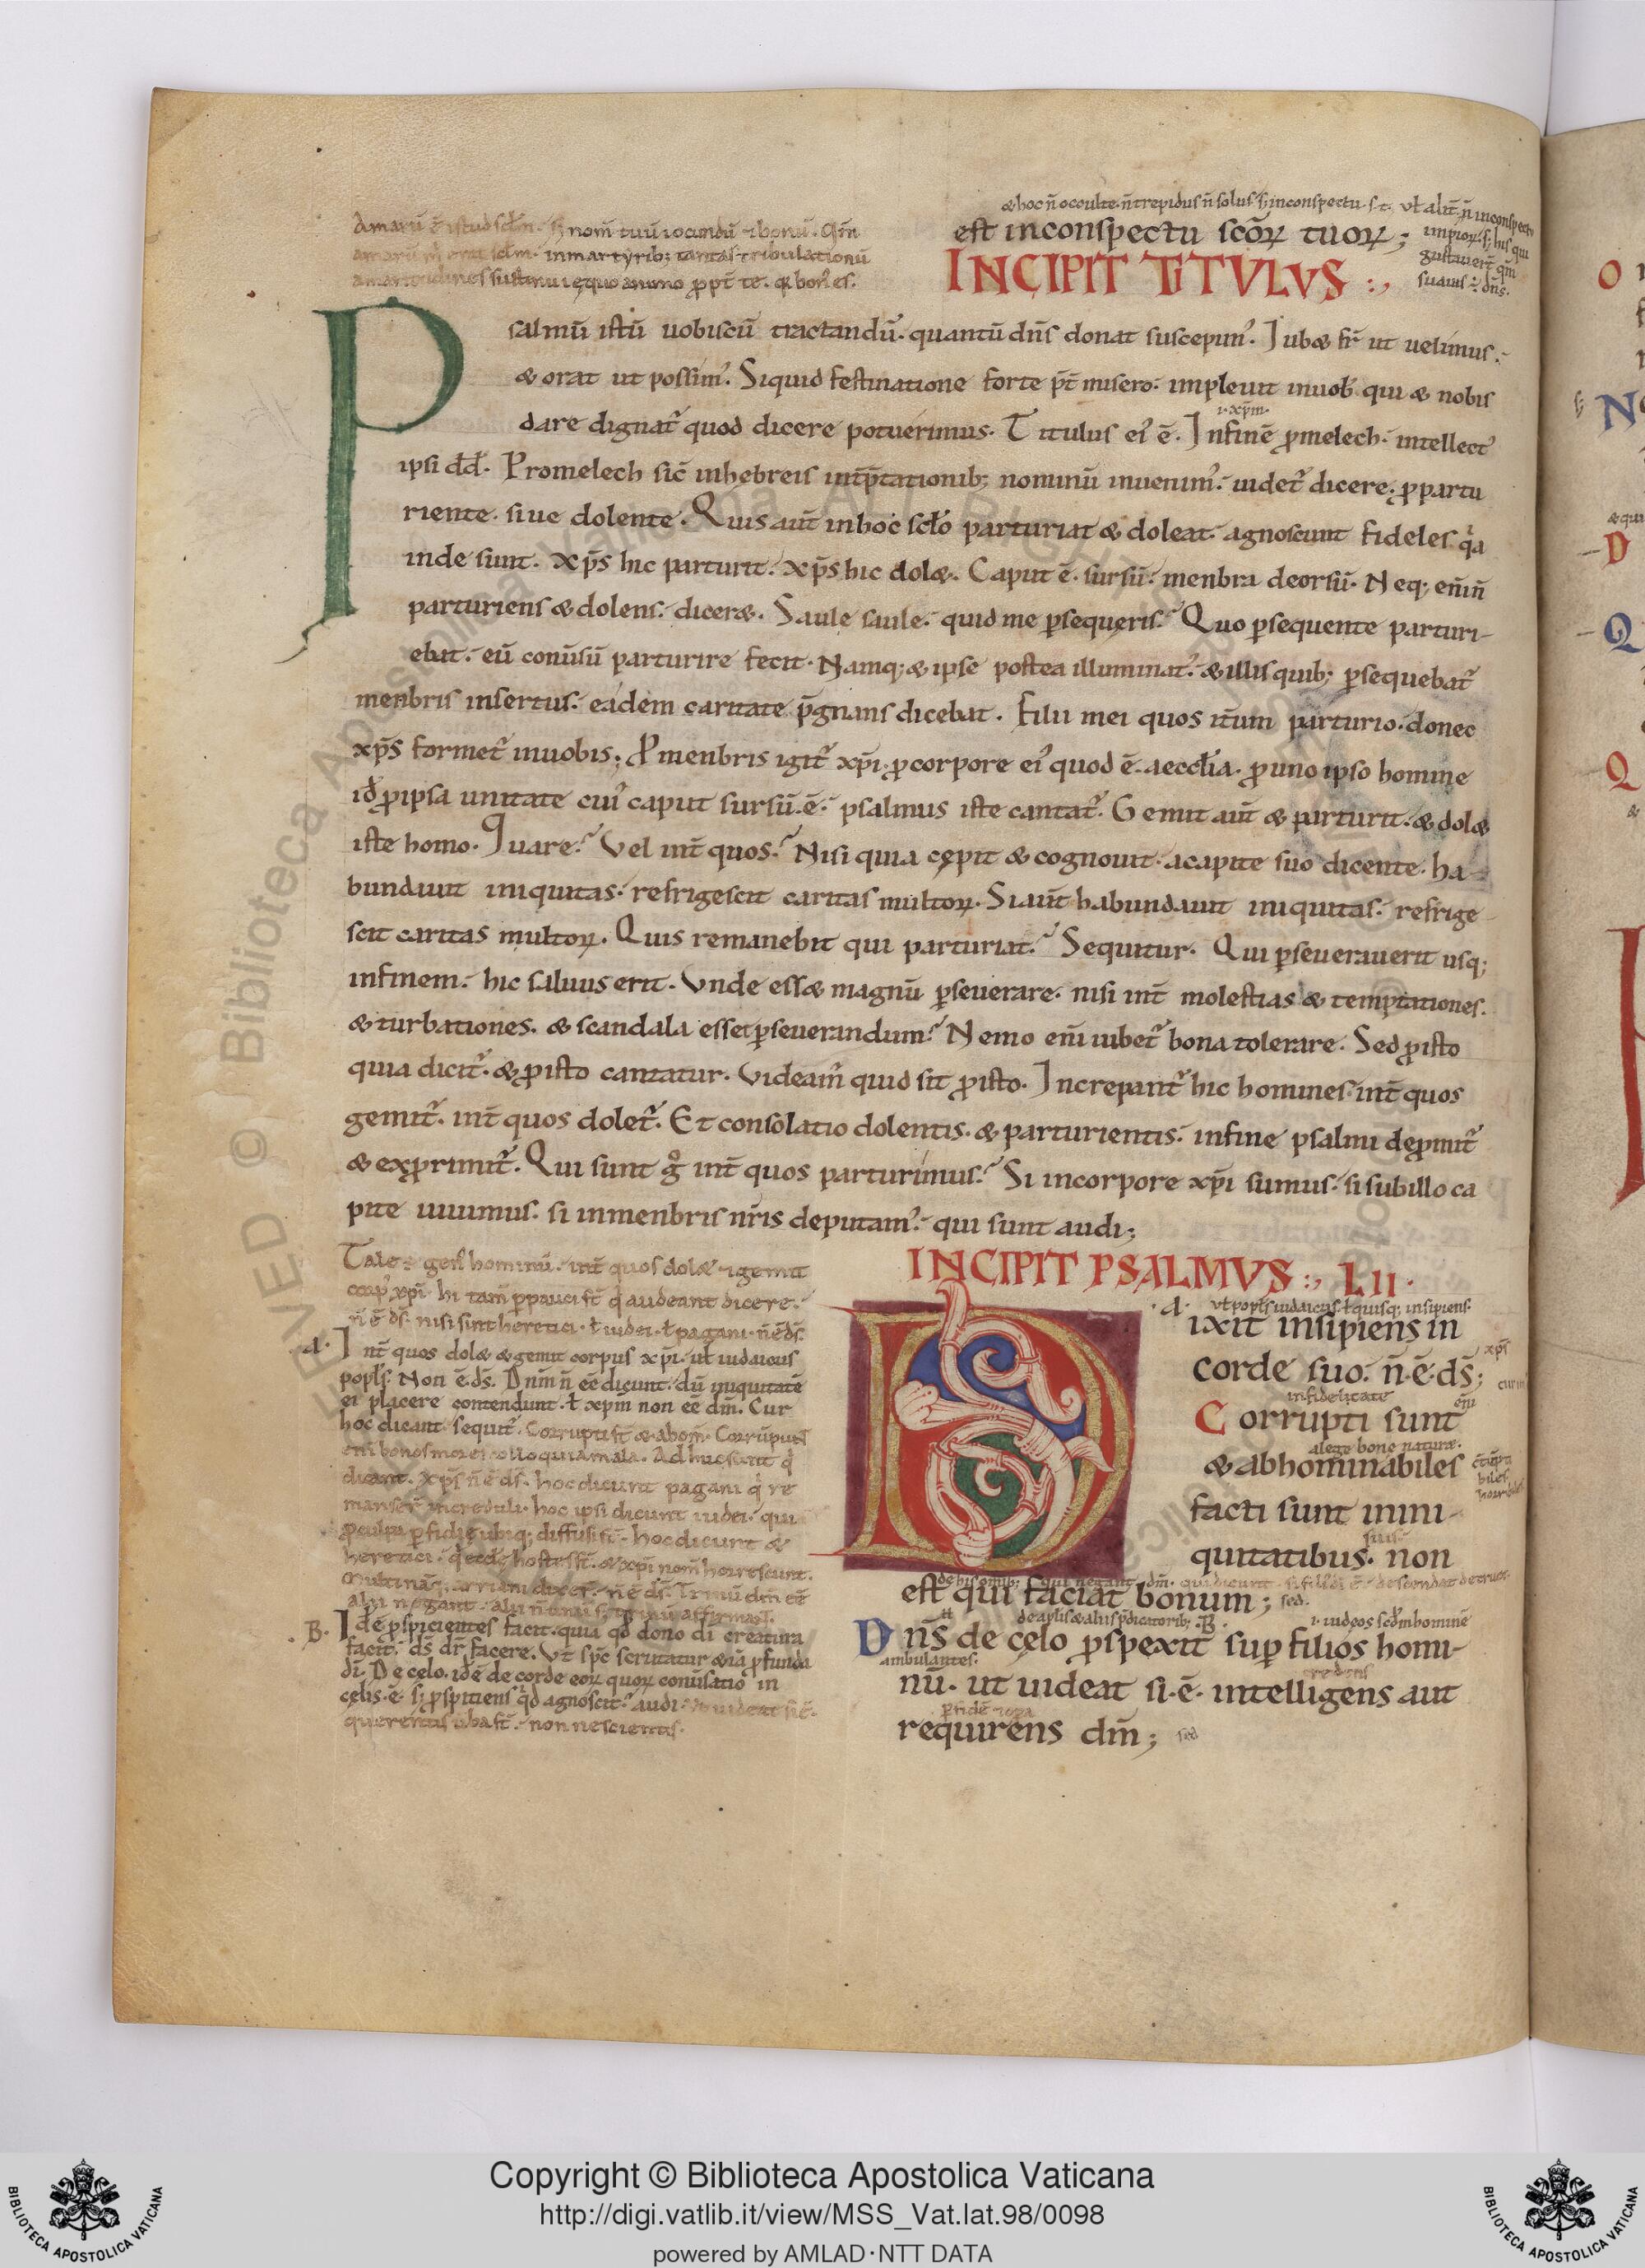 & hoc n̄ occulte. n̄ trepidus n̄ solus. s; inconspectu
est inconspectu scōꝝ tuoꝝ;
impioꝝ. s; his qui
gustauer̄t qm̄
suauis ÷ dn̄s.
INCIPIT TITVLVS :,
Amarū ē istud scl̄m. s; nom̄ tuū iocundū & bonū. Qm̄
amarū m̄ erat scl̄m. inmartyrib; tantas tribulationū
amaritudines sustinui ęquo animo ꝓpt̄ te. q̄ bon' es.
P
salmū istū uobiscū tractandū. quantū dn̄s donat suscepim'. Iub& fr̄ ut uelimus.
& orat ut possim'. Siquid festinatione forte p̄t̄misero. impleuit inuob̄ qui & nobis
dare dignat̄ quod dicere potuerimus. Titulus ei' ē. Infinē ꝓmelech. intellect'
.i. xp̄m.
ipsi dd̄. Promelech sic̄ inhebreis int̄p̄tationib; nominū inuenim'. uidet̄ dicere. ꝓpartu
riente. siue dolente. Quis aut̄ inhoc scl̄o parturiat & doleat. agnoscunt fideles q̇a
inde sunt. xp̄s hic parturit. xp̄s hic dol&. Caput ē. sursū. menbra deorsū. Neq; enīn̄
parturiens & dolens. dicer&. Saule saule. quid me ꝑsequeris? Quo ꝑsequente parturi-
ebat. eū conūsū parturire fecit. Namq; & ipse postea illuminat'. & illis quib; ꝑsequebat̄
menbris insertus. eadem caritate p̄gnans dicebat. Filii mei quos it̄um parturio. donec
xp̄s formet̄ inuobis; Pmenbris igit̄ xp̄i. ꝓcorpore ei' quod ē. aeccl̄ia. ꝓuno ipso homine
id̄ ꝓipsa unitate cui' caput sursū.ē. psalmus iste cantat̄. Gemit aut̄ & parturit. & dol&
iste homo. Quare? Vel int̄ quos? Nisi quia cępit & cognouit. acapite suo dicente. ha-
bundauit iniquitas. refrigescit caritas multoꝝ. Si aut̄ habundauit iniquitas. refrige
scit caritas multoꝝ. Quis remanebit qui parturiat? Sequitur. Qui ꝑseuerauerit usq;
infinem. hic saluus erit. Vnde ess& magnū ꝑseuerare. nisi int̄ molestias & temptationes.
& turbationes. & scandala esset ꝑseuerandum? Nemo enī iubet̄ bona tolerare. Sed ꝓisto
quia dicit̄. & ꝓisto cantatur. Videam̄ quid sit ꝓisto. Increpant̄ hic homines. int̄ quos
gemit̄. int̄ quos dolet̄. Et consolatio dolentis. & parturientis. infine psalmi depmit̄
& exprimit̄. Qui sunt g̊ int̄ quos parturimus? Si incorpore xp̄i sumus. si subillo ca
pite uiuimus. si inmenbris nr̄is deputam'. qui sunt audi;
Tale ÷ gen' hominū. int̄ quos dol& & gemit
corp' xp̄i. hi tam̄ ꝑpauci st̄ q̇ audeant dicere.
n̄ ē ds̄. nisi sint heretici. ł iudei. ł pagani. n̄ ē ds̄.
.A. Int̄ quos dol& & gemit corpus xp̄i. ut̄ iudaicus
popl̄s. Non ē ds̄. Dnm̄ n̄ eē dicunt. dū iniquitatē
ei placere contendunt. ł xpm̄ non eē dm̄. Cur
hoc dicant sequit̄. Corrupti st̄ & abom̄. Corrūpunt
enī bonos mores colloquia mala. Adhuc sunt q̇
dicant. xp̄s n̄ ē ds̄. hoc dicunt pagani q̇ re
manser̄ increduli. hoc ipsi dicunt iudei. qui
hoc dicunt &
heretici. & xp̄i nom̄ horrescunt.
.B. Idē ꝑspicientes facit. quia qd̄ dono di creatura
facit. ds̄ dr̄ facere. Vt sp̄c scrutatur & iā ꝓfunda
di. De celo. idē de corde eoꝝ quoꝝ conūsatio in
celis.ē. s; ꝑspiciens qd̄ agnoscit? audi. ut uideat si ē.
non nescientis.
INCIPIT PSALMVS :, LII.
.A. ut̄ popl̄s iudaicus. ł quisq; insipiens.
D
ixit insipiens in
corde suo. n̄.ē.ds̄;
xp̄s
infidelitate enī
Corrupti sunt
a lege bonę naturæ.
& abhominabiles
facti sunt inini-
suis.
quitatibus. non
est qui faciat bonum; sed.
de aplis & aliis p̄dicatorib; .B. .i. iudęos scd̄m hominē
Dn̄s de cęlo ꝑspexit suꝑ filios homi-
ambulantes.
nū. ut uideat si.ē. intelligens aut
credens
requirens dm̄; sed
© Biblioteca Apostolica Vaticana
Copyright © Biblioteca Apostolica Vaticana
http://digi.vatlib.it/view/MSS_Vat.lat.98/0098
powered by AMLAD·NTT DATA
BIBLIOTECA APOSTOLICA VATICANA
BIBLIOTECA APOSTOLICA VATICANA